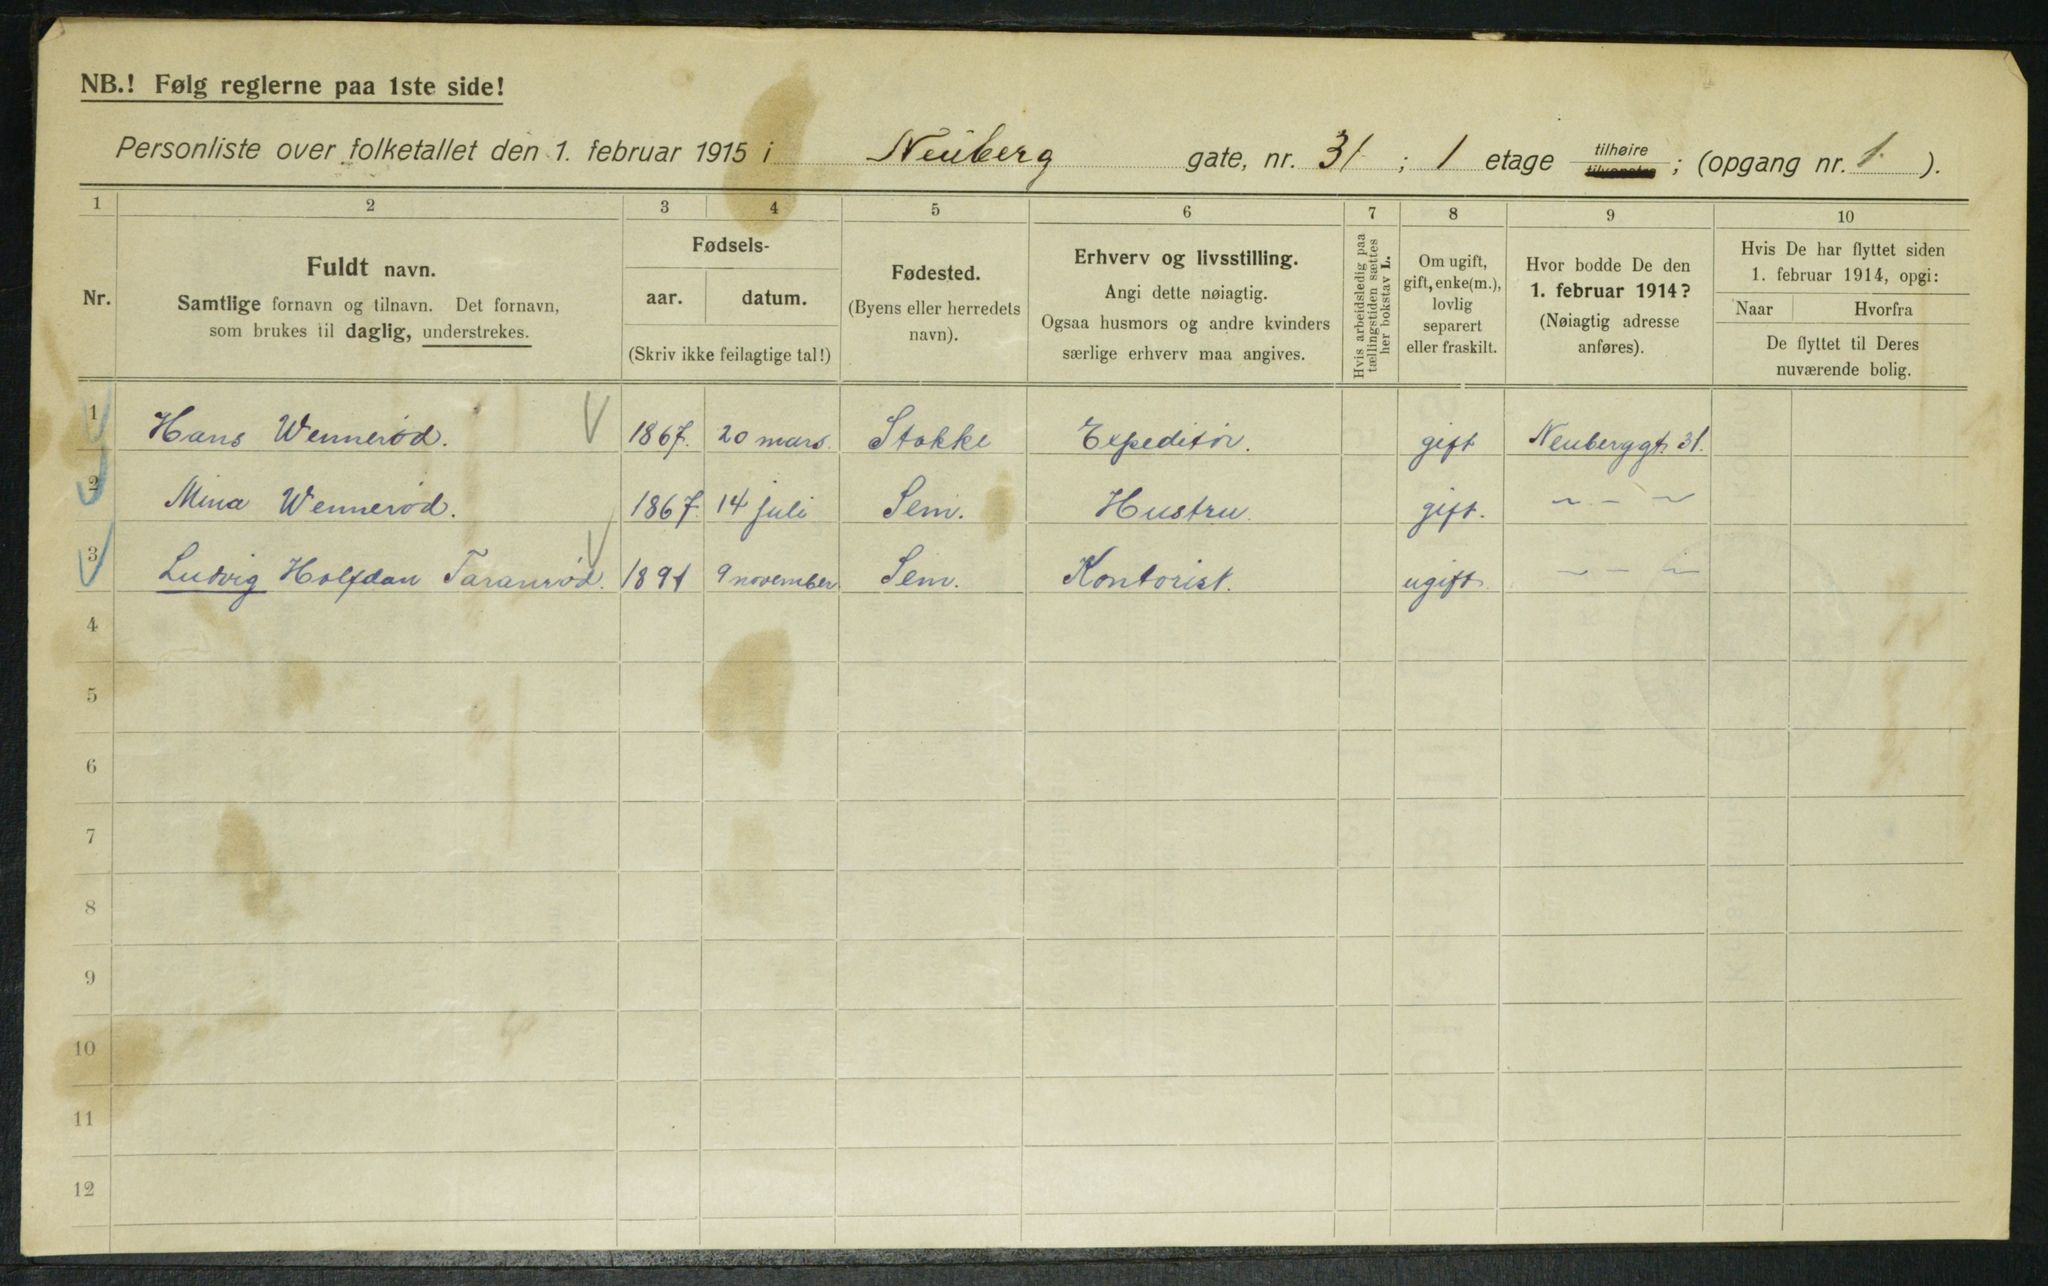 NB.! Følg reglerne paa 1ste side!
Personliste over folketallet den 1. februar 1915 i Neuberg gate, nr. 31 ; 1 etage tilhøire tilvenstre ; (opgang nr. 1. ).
1 2 3 4 5 6 7 8 9 10
Nr.
Fuldt navn.
Samtlige fornavn og tilnavn. Det fornavn,
som brukes til daglig, understrekes.
Fødsels-
aar. datum.
(Skriv ikke feilagtige tal!)
Fødested.
(Byens eller herredets
navn).
Erhverv og livsstilling.
Angi dette nøiagtig.
Ogsaa husmors og andre kvinders
særlige erhverv maa angives.
Hvis arbeidsledig paa
tællingstiden sættes
her bokstav L.
Om ugift,
gift, enke(m.),
lovlig
separert
eller fraskilt.
Hvor bodde De den
1. februar 1914?
(Nøiagtig adresse
anføres).
Hvis De har flyttet siden
1. februar 1914, opgi:
Naar Hvorfra
De flyttet til Deres
nuværende bolig.
1 Hans Wennerød. 1867. 20 mars. Stokke Expeditør. gift Neuberggt. 31.
2 Mina Wennerød. 1867. 14 juli Sem. Hustru. gift. ~ - ~
3 Ludvig Halfdan Taranrød. 1891 9 november. Sem. Kontorist. ugift. ~ - ~
4
5
6
7
8
9
10
11
12